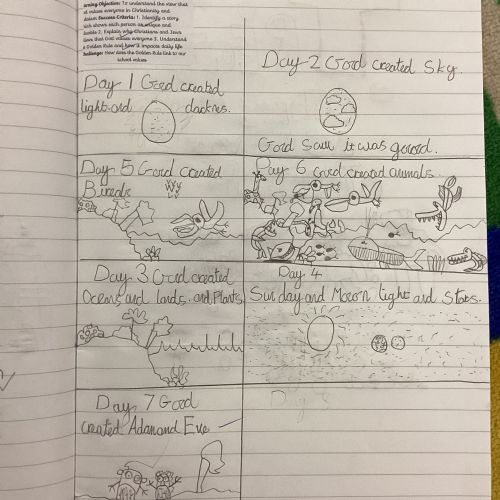 arning Objective: To understand the view that
d values everyone in Christianity and
daism Success Criteria: 1. Identify a story
ich shows each person as unique and
luable 2. Explain why Christians and Jews
lieve that God values everyone 3. Understand
e Golden Rule and how it impacts daily life.
hallenge: How does the Golden Rule link to our
school values
Day 1 Good created
light and dackres.
Day 2 Good created Sky.
Good Saw it was goood.
Day 5 Good created
Bireds
Day 6 Good created animals.
Day 3 God created
Oceans and lands. and Plants
Day 4
Sun day and Mooon light and Stars.
Day 7 Good
created Adam and Eve